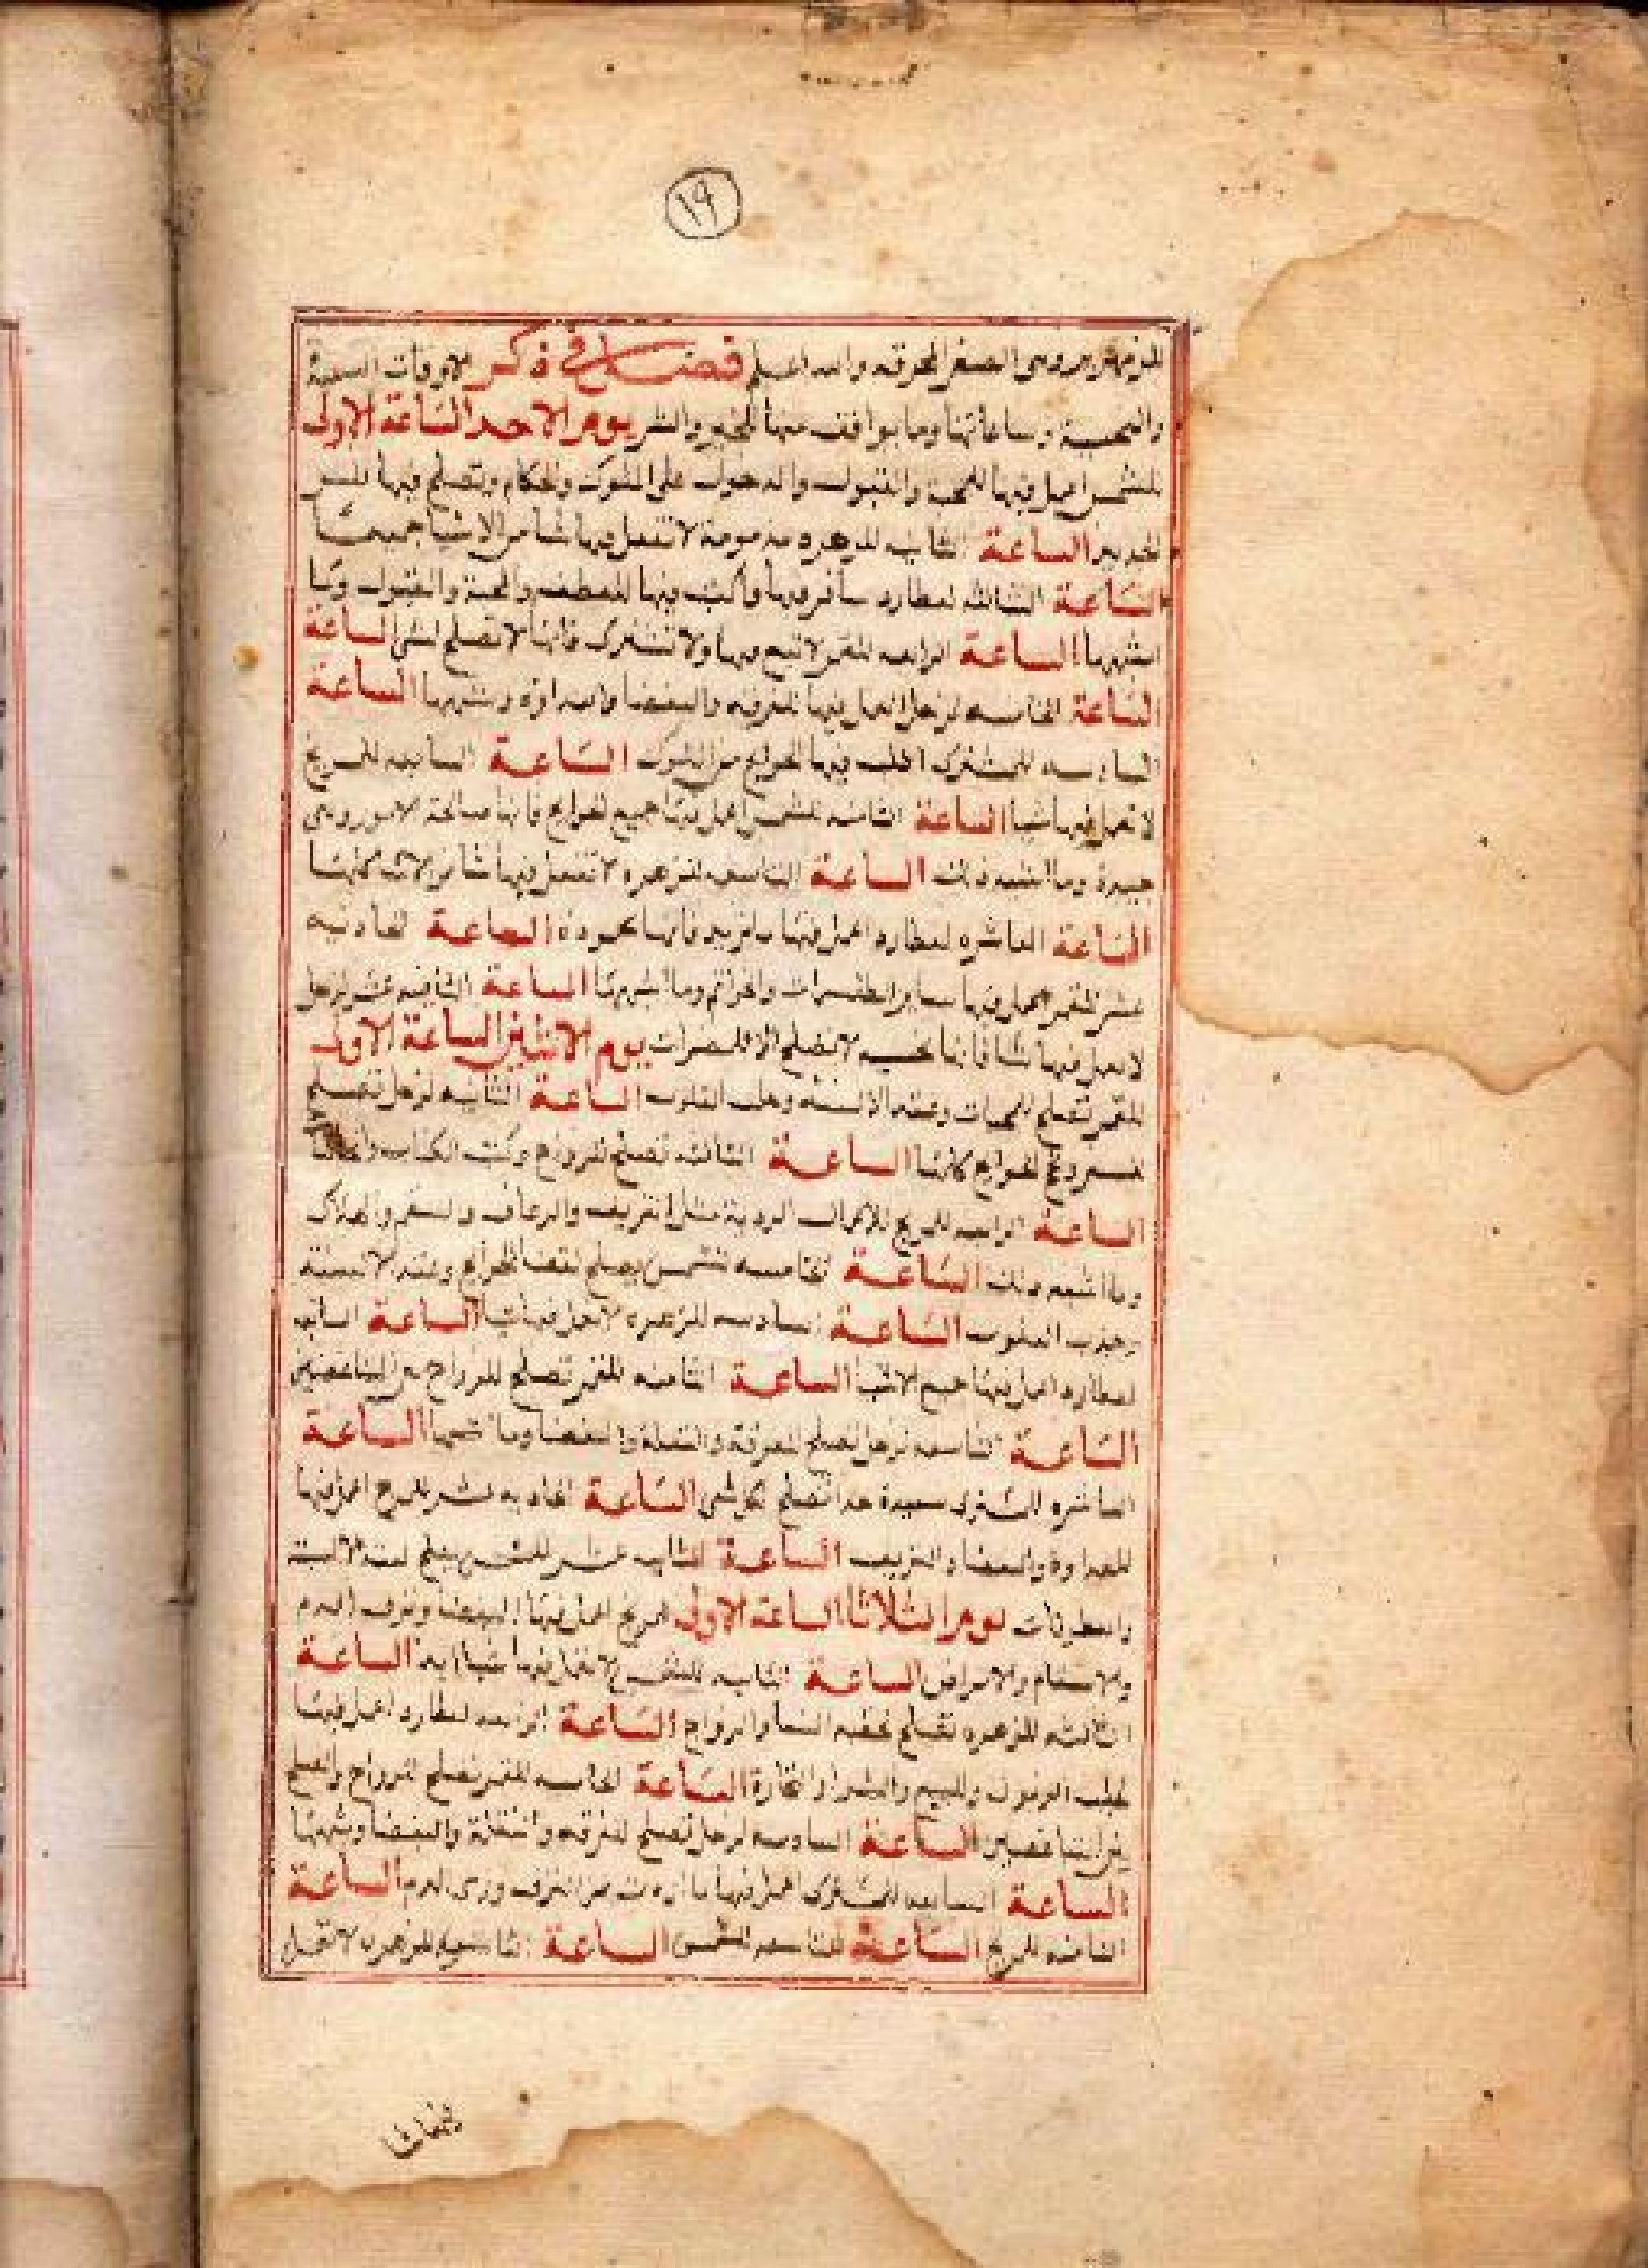 ١٩
والله اعلم فصل في ذكر الاوقات السعيدة
والنحسية وساعاتها وما يوافق منها للخير والشر يوم الاحد الساعة الاولى
للشمس اعمل فيها للمحبة والقبول والدخول على الملوك والحكام وتصلح فيها للبس
الجديد الساعة الثانيه للزهره مذمومة لا تفعل فيها شيا من الاشيا جميعا
الساعة الثالثه لعطارد سافر فيها واكتب فيها للعطف والمحبة والقبول وما
اشبهها الساعة الرابعه للقمر لا تبع فيها ولا تشترى فانها لا تصلح لشى الساعة
الساعة الخامسه لزحل اعمل فيها للفرقه والبغضا والعداوه وشبهها الساعة
السادسه للمشترى اطلب فيها الحوايج من الملوك الساعة السابعه للمريخ
لا تعمل فيها شيا الساعة الثامنه للشمس اعمل فيها جميع الحوايج فانها صالحة للامور وهى
جيدة وما اشبه ذلك الساعة التاسعه للزهره لا تفعل فيها شيا
الساعة العاشره لعطارد اعمل فيها ما تريد فانها محمودة الساعة الحاديه
عشر للقمر اعمل فيها ساير الطلسمات والخواتم وما اشبهها الساعة الثانيه عشر لزحل
لا تعمل فيها شيا فانها نحسه لا تصلح الا للمضرات يوم الاثنين الساعة الاولى
للقمر تصلح للمحبات وعقد الالسنة وجلب القلوب الساعة الثانيه لزحل تصلح
للسفر وقضا الحوايج كلها الساعة الثالثه تصلح للزواج وكتب الكتاب
الساعة الرابعه للمريخ للاعمال الردية مثل النزيف والرعاف والسقم والهلاك
وما اشبه ذلك الساعة الخامسه للشمس يصلح لقضا الحوايج وعقد الالسنة
وجذب القلوب الساعة السادسه للزهره لا تعمل فيها شيا الساعة السابعه
لعطارد اعمل فيها جميع الاشيا الساعة الثامنه للقمر تصلح للزواج بين المتباغضين
الساعة التاسعه لزحل تصلح للفرقة والنقلة والبغضا وما اشبهها الساعة
العاشره للمشترى سعيدة جدا تصلح لكل شى الساعة الحاديه عشر للمريخ اعمل فيها
للعداوة والبغضا والنزيف الساعة الثانيه عشر للشمس يصلح لعقد الالسنة
والعطوفات يوم الثلاثا الساعة الاولى للمريخ اعمل فيها للبغضة ونزف الدم
والاسقام والامراض الساعة الثانيه للشمس لا تعمل فيها شيا ابدا الساعة
الثالثه للزهره تصلح لخطبه النسا والزواج الساعة الرابعه لعطارد اعمل فيها
لجلب الزبون والبيع والشرا والتجارة الساعة الخامسه للقمر تصلح للزواج والصلح
بين المتباغضين الساعة السادسه لزحل تصلح للفرقه والنقلة والبغضا وشبهها
الساعة السابعه للمشترى اعمل فيها ما اردت من النزف ورمى الدم الساعة
الثامنه للمريخ الساعة التاسعه للشمس الساعة العاشره للزهره لا تعمل